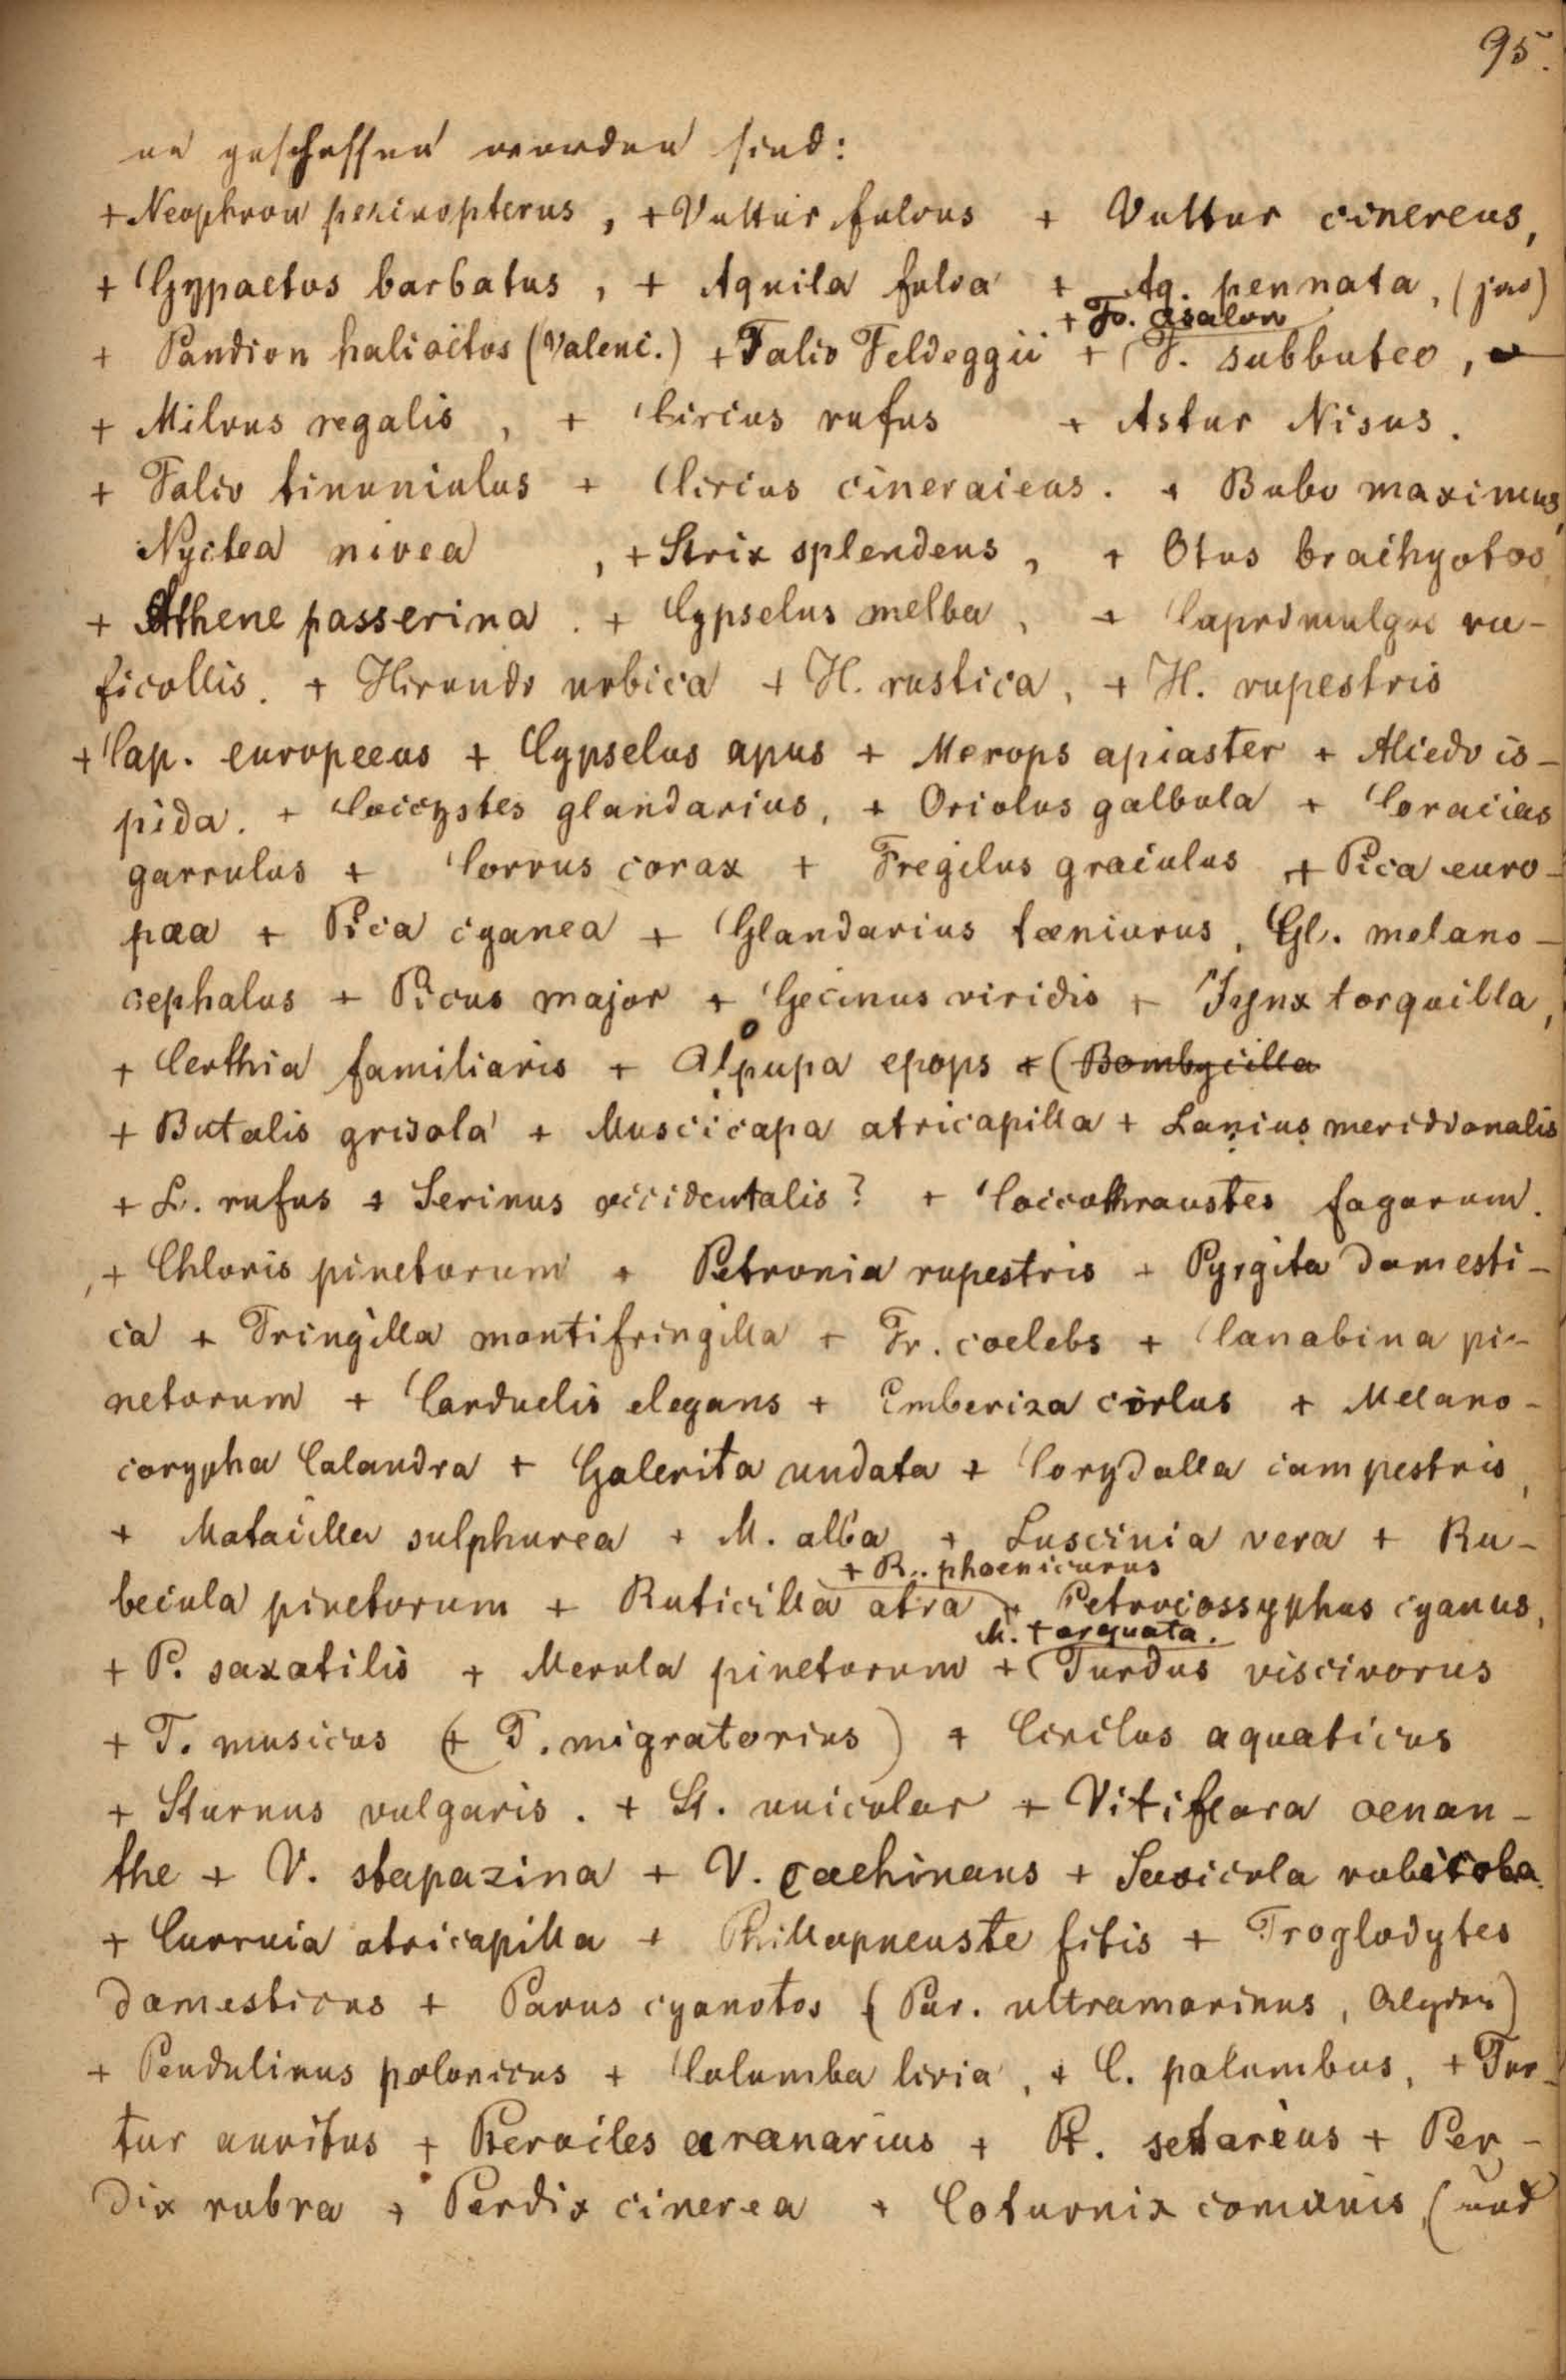 95.
en geschossen worden sind:
+ Neophron percnopterus, + Vultur fulvus + Vultur cinereus,
+ Gypaetos barbatus, + Aquila fulva + Aq. pennata, (juv)
+ F. äsalon
+ Pandion haliaëtos (Valenc.) + Falco Feldeggii + F. subbuteo,
+ Milvus regalis, + Circus rufus + Astur Nisus.
+ Falco tinunculus + Circus cineraceus. + Bubo maximus,
Nyctea nivea, + Strix splendens, + Otus brachyotos
+ Athene passerina. + Cypselus melba, + Caprimulgus ru-
ficollis. + Hirundo urbica + H. rustica, + H. rupestris
+ Cap. europeeus + Cypselus apus + Merops apiaster + Alcedo is-
pida. + Coccystes glandarius, + Oriolus galbula + Coracias
garrulus + Corvus corax + Fregilus graculus + Pica euro-
paea + Pica cyanea + Glandarius tæniurus, Gl. melano-
cephalus + Picus major + Gecinus viridis + Jynx torquilla,
+ Certhia familiaris + Upupa epops + (Bombycilla
+ Butalis grisola + Muscicapa atricapilla + Lanius meridionalis
+ L. rufus + Serinus occidentalis? + Coccothraustes fagorum.
+ Chloris pinetorum + Petronia rupestris + Pyrgita domesti-
ca + Fringilla montifringilla + Fr. coelebs + Canabina pi-
netorum + Carduelis elegans + Emberiza cirlus + Melano-
corypha Calandra + Galerita undata + Corydalla campestris,
+ Motacilla sulphurea + M. alba + Luscinia vera + Ru-
+ R. phoenicurus
becula pinetorum + Ruticilla atra + Petrocossyphus cyanus,
M. torquata.
+ P. saxatilis + Merula pinetorum + (Turdus viscivorus
+ T. musicus (+ T. migratorius) + Cinclus aquaticus
+ Sturnus vulgaris. + St. unicolor + Vitiflora oenan-
the + V. stapazina + V. cachinans + Saxicola rubicola
+ Curruca atricapilla + Phillopneuste fitis + Troglodytes
domesticus + Parus cyanotos (Par. ultramarinus,
+ Pendulinus polonicus + Columba livia, + C. palumbus, + Tur-
tur auritus + Pterocles arenarius + Pt. setarius + Per-
dix rubra + Perdix cinerea + Coturnix comunis, (und